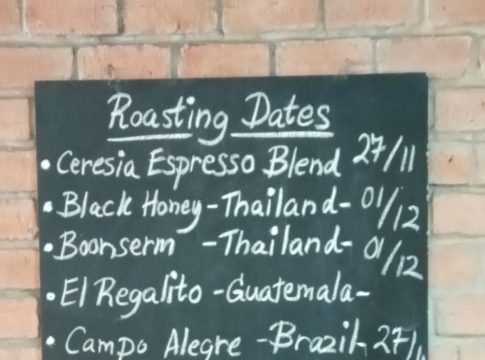 Roasting Dates
• Ceresia Espresso Blend 27/11
• Black Honey - Thailand - 01/12
• Boonserm - Thailand - 01/12
• El Regalito - Guatemala -
• Campo Alegre - Brazil -